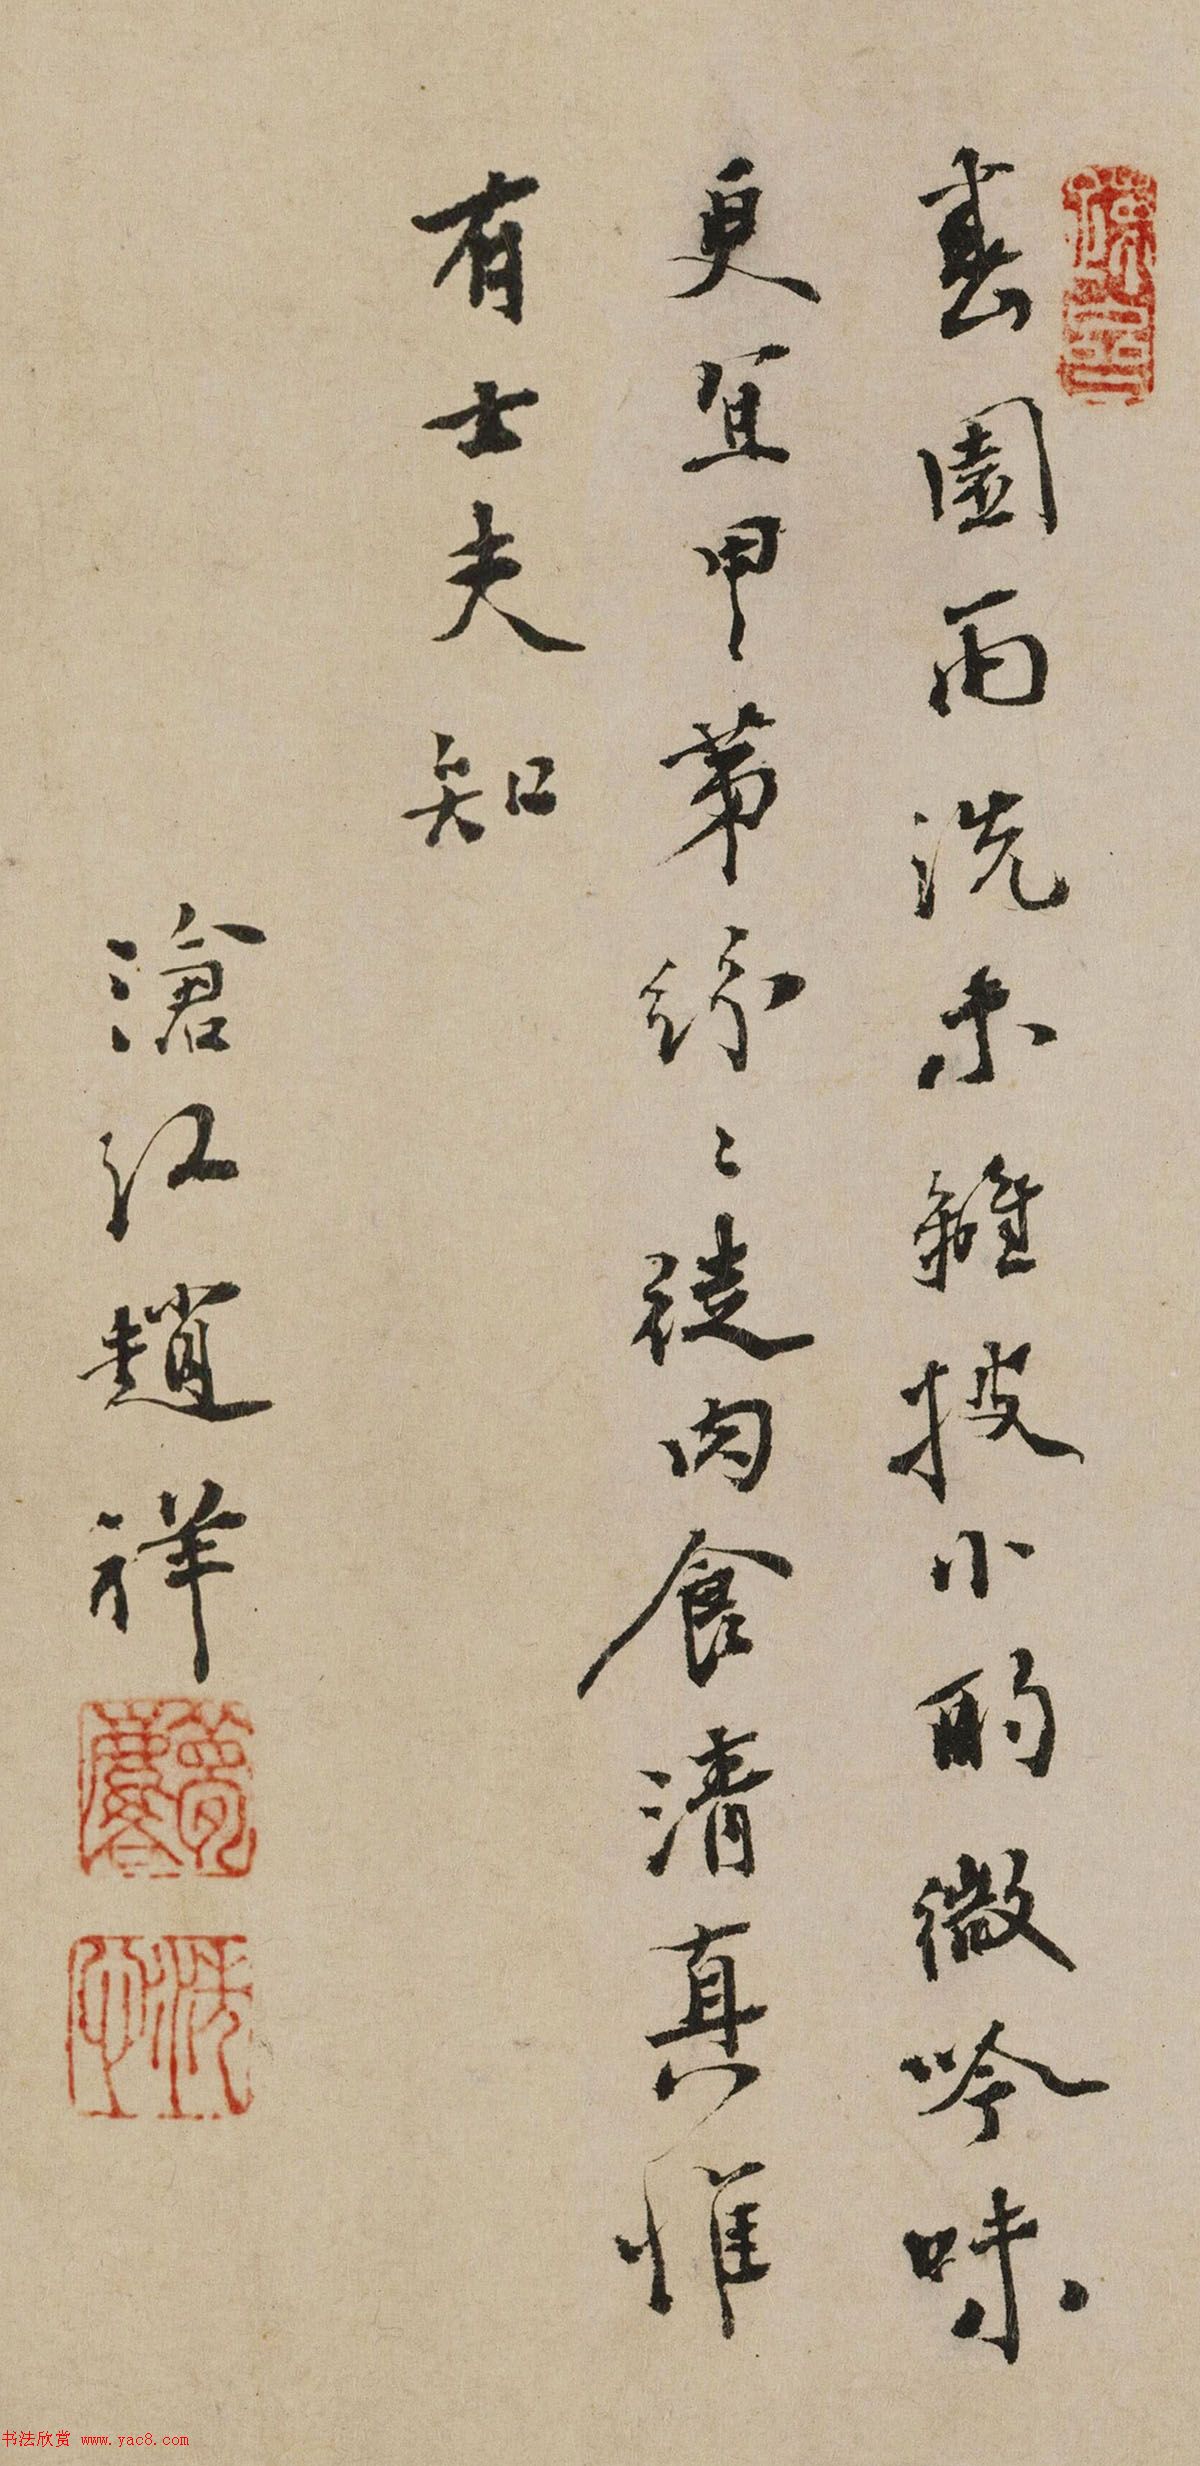 春園雨洗未離披小酌微吟味
更宜甲第紛〻徒肉食清真惟
有士夫知
滄江趙祥
书法欣赏 www.yac8.com